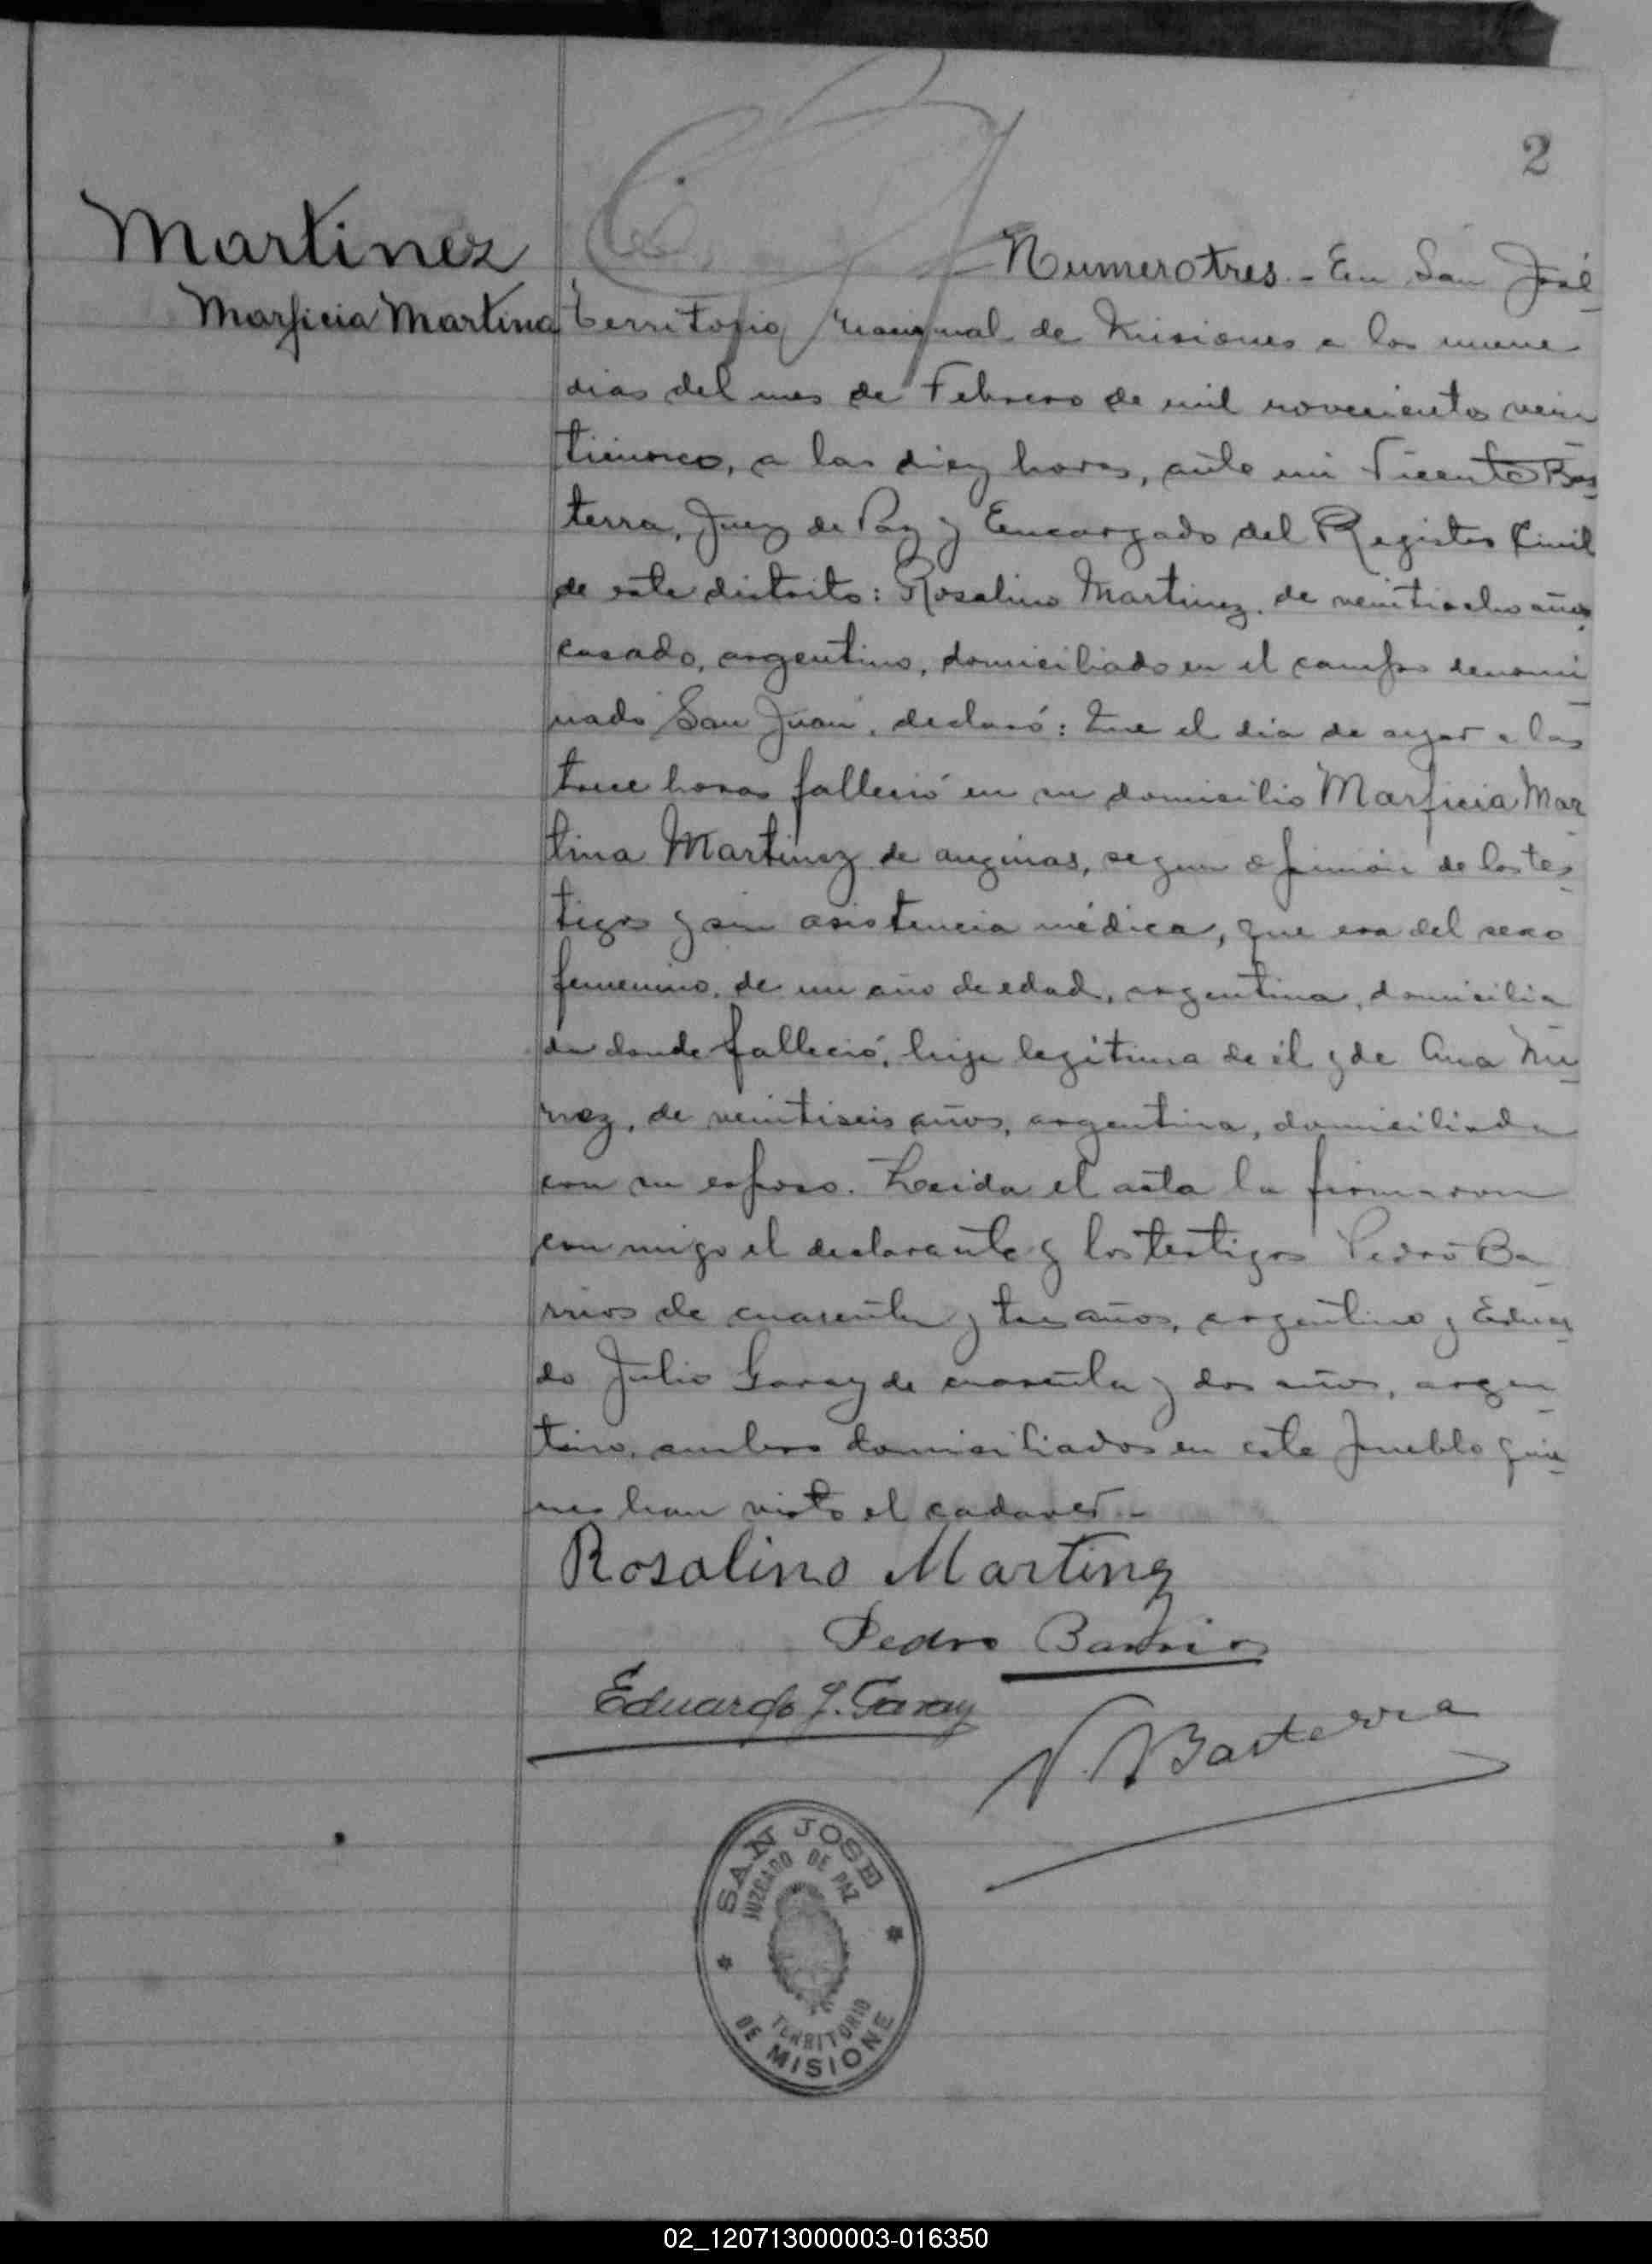 2
Martinez
Marficia Martina
Numero tres.- En San José
territorio nacional de Misiones a los nueve
dias del mes de Febrero de mil novecientos vein
ticinco, a las diez horas, ante mi Vicente Bas
terra, Juez de Paz y Encargado del Registro Civil
de este distrito: Rosalino Martinez, de veintiocho años
casado, argentino, domiciliado en el campo denomi
nado San Juan, declaró: Que el dia de ayer a las
trece horas falleció en su domicilio Marficia Mar
tina Martinez de anginas, segun opinión de los tes
tigos y sin asistencia médica, que era del sexo
femenino, de un año de edad, argentina, domicilia
da donde falleció, hija legítima de él y de Ana Nu
nez, de veintiseis años, argentina, domiciliada
con su esposo. Leida el acta la firmaron
con migo el declarante y los testigos Pedro Ba
rrios de cuarenta y tres años, argentino y Eduar
do Julio Garay de cuarenta y dos años, argen
tino, ambos domiciliados en este pueblo quie
nes han visto el cadaver.-
Rosalino Martinez
Pedro Barrios
Eduardo J. Garay
V. Basterra
SAN JOSE
JUZGADO DE PAZ
TERRITORIO
DE MISIONE
02_120713000003-016350